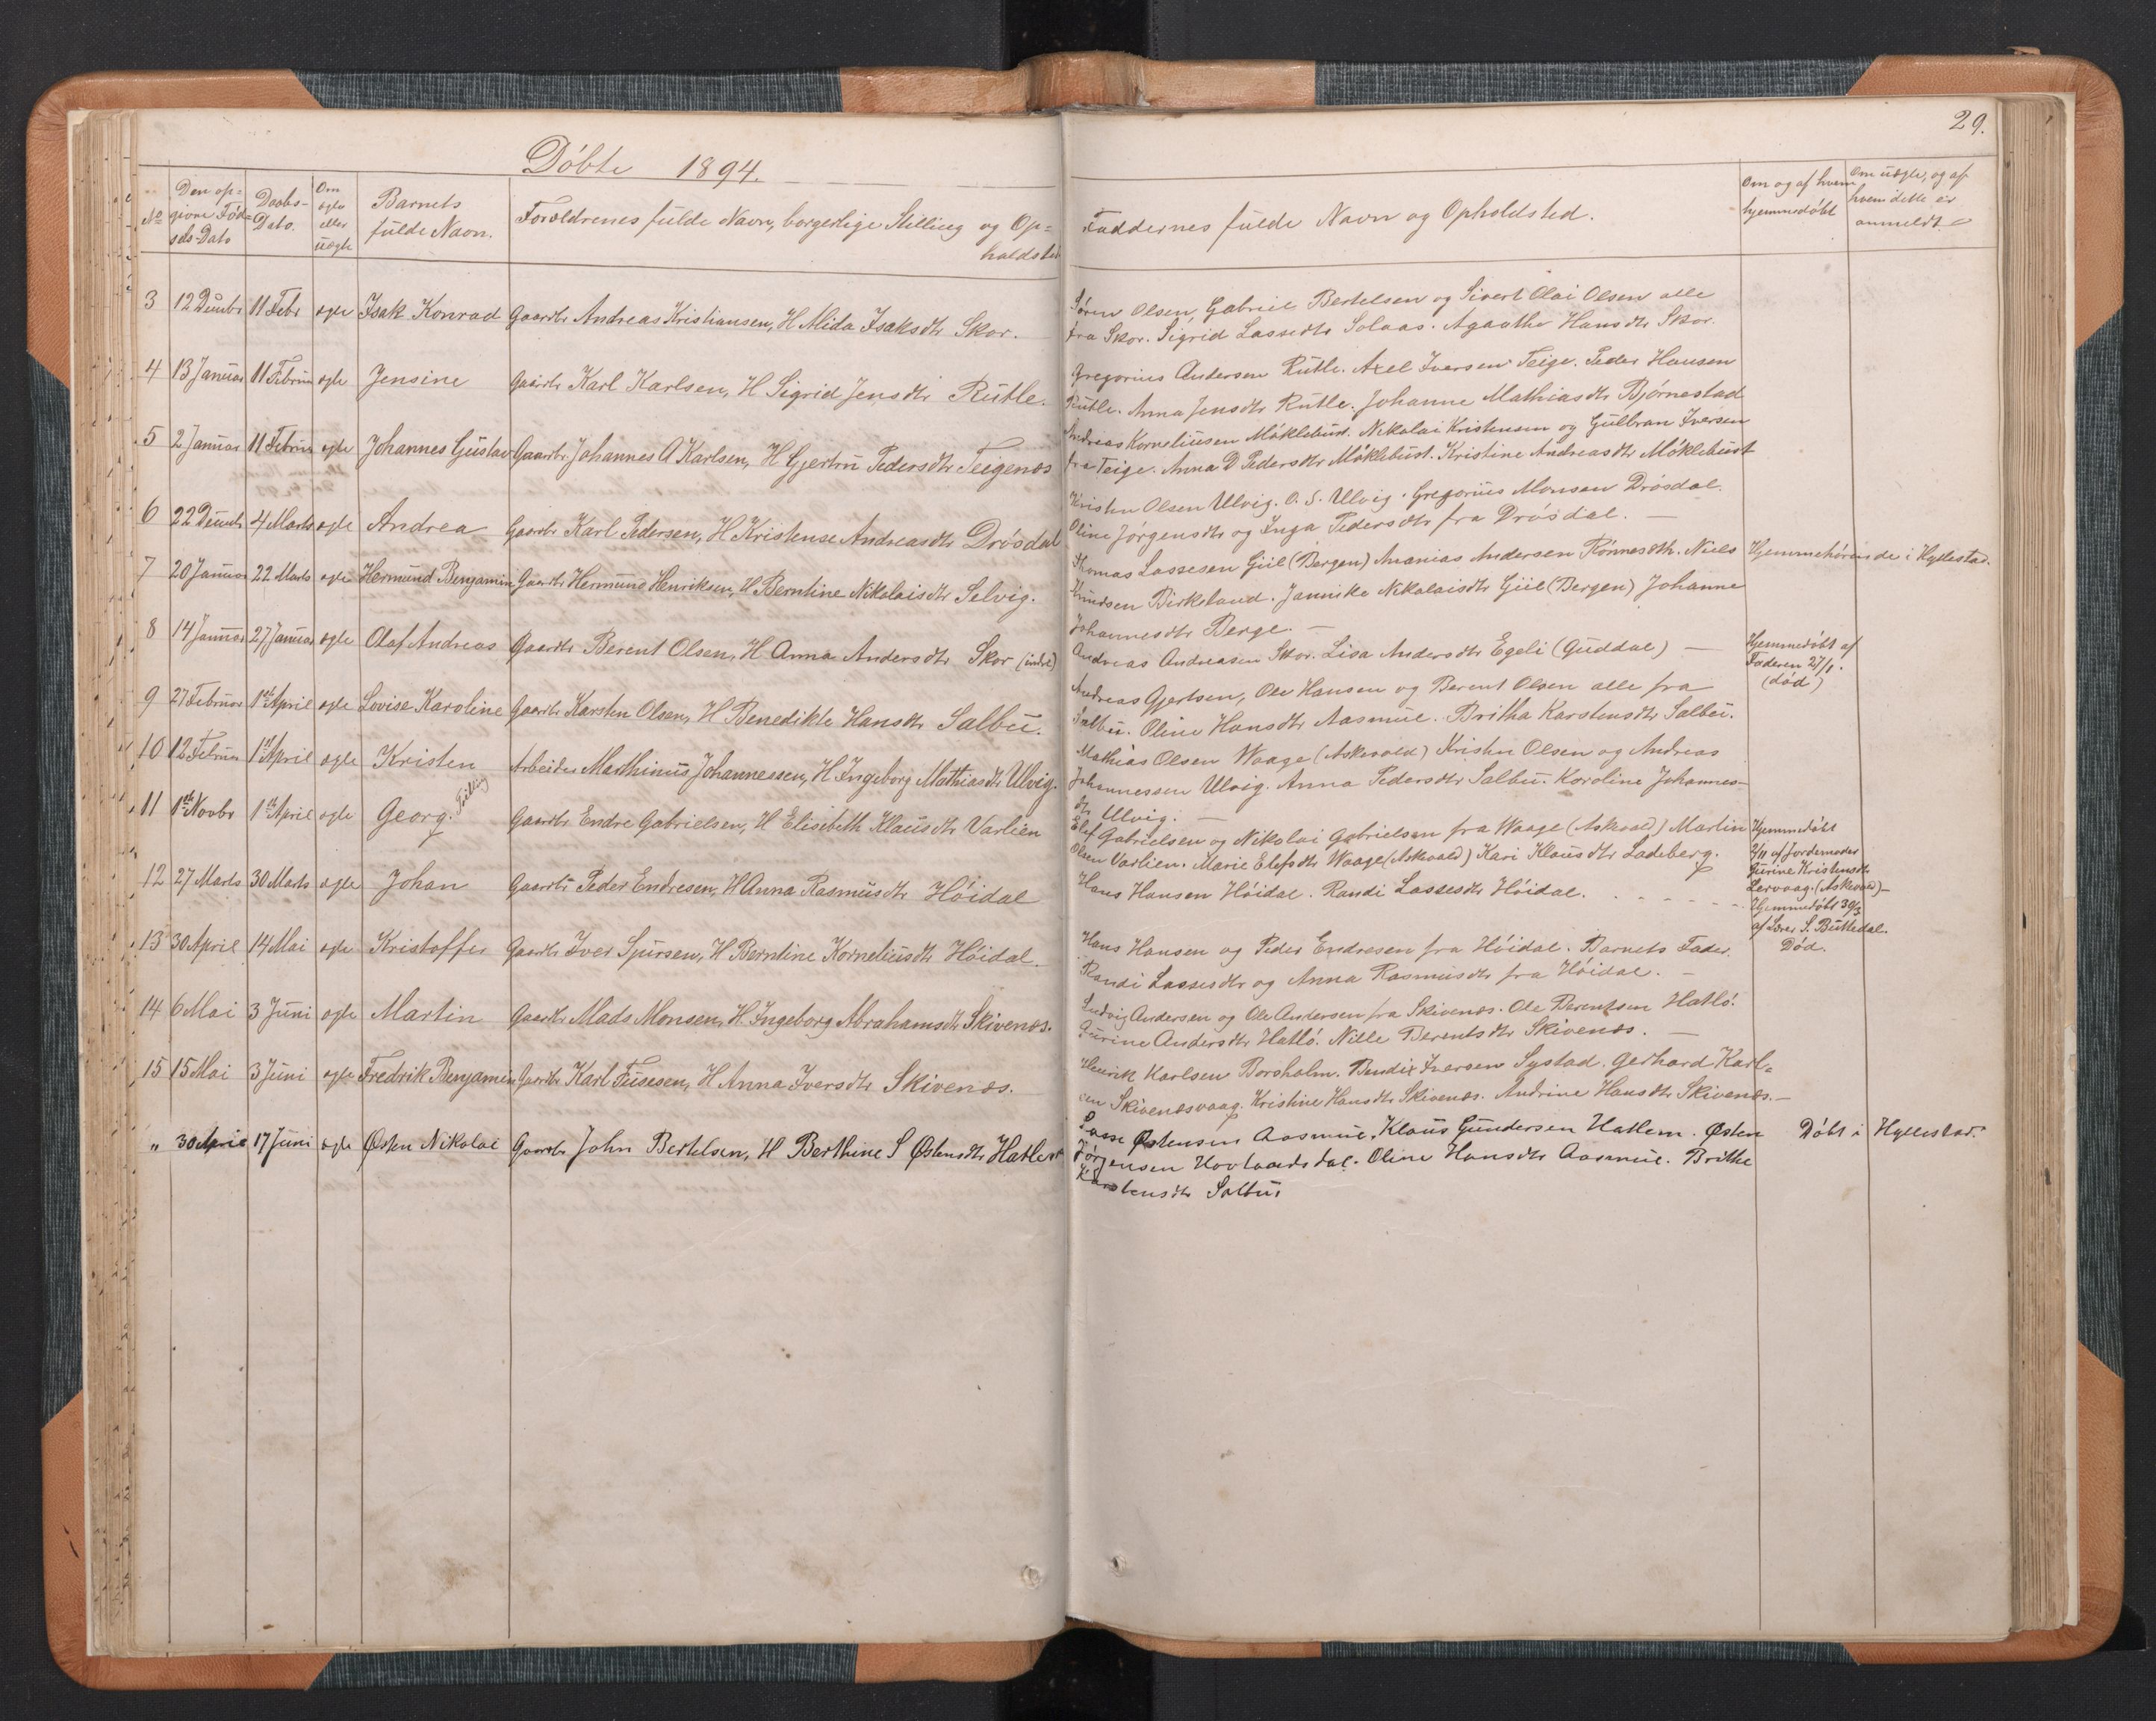 29.
Döbte 1894.
No
Den op=
givne Fød=
sels-Dato
Daabs-
Dato.
Om
ægte
eller
uægte
Barnets
fulde Navn.
Forældrenes fulde Navn, borgerlige Stilling og Op=
holdsted
Faddernes fulde Navn og Opholdsted.
Om og af hvem
hjemmedöbt
Om uægte, og af
hvem dette er
anmeldt
3 12 Decembr 11 Febr ægte Isak Konrad Gaardbr Andreas Kristiansen, H Alida Isaksdtr Skor.
Sören Olsen, Gabriel Bertelsen og Sivert Olai Olsen alle
fra Skor. Sigrid Lassedtr Solaas. Agaathe Hansdtr Skor.
4 13 Januar 11 Februar ægte Jensine Gaardbr Karl Karlsen, H Sigrid Jensdtr Rutle.
Gregorius Andersen Rutle. Axel Iversen Teige. Peder Hansen
Rutle. Anna Jensdtr Rutle. Johanne Mathiasdtr Bjørnestad
5 2 Januar 11 Februar ægte Johannes Gustav Gaardbr Johannes A Karlsen, H Gjertru Pedersdtr Teigenæs
Andreas Korneliusen Möklebust. Nikolai Kristensen og Gulbran Iversen
fra Teige. Anna D Pedersdtr Möklebust. Kristine Andreasdtr Möklebust
6 22 Decembr 4 Marts ægte Andrea Gaardbr Karl Pedersen, H Kristense Andreasdtr Drösdal
Kristen Olsen Ulvig. O. S. Ulvig. Gregorius Monsen Drösdal.
Oline Jörgensdtr og Inga Pedersdtr fra Drösdal. —
7 20 Januar 22 Marts ægte Hermund Benjamin Gaardbr Hermund Henriksen, H Berntine Nikolaisdtr Selvig.
Thomas Lassesen Giil (Bergen) Ananias Andersen Rönneseth. Niels
Knudsen Birkeland. Jannike Nikolaisdtr Giil (Bergen) Johanne
Johannesdtr Berge. —
Hjemmehörende i Hyllestad.
8 14 Januar 27 Januar ægte Olaf Andreas Gaardbr Berent Olsen, H Anna Andersdtr Skor (indre)
Andreas Andreasen Skor. Lisa Andersdtr Egeli (Guddal) —
Hjemmedöbt af
Faderen 27/1.
(död)
9 27 Februar 1ste April ægte Lovise Karoline Gaardbr Karsten Olsen, H Benedikte Hansdtr Salbu.
Andreas Gjertsen, Ole Hansen og Berent Olsen alle fra
Salbu. Oline Hansdtr Aasmul. Britha Karstensdtr Salbu.
10 12 Februar 1st April ægte Kristen Arbeider Mathinus Johannessen, H Ingeborg Mathiasdtr Ulvig.
Mathias Olsen Waage (Askevold) Kristen Olsen og Andreas
Johannessen Ulvig. Anna Pedersdtr Salbu. Karoline Johannes-
dtr Ulvig. —
11 1ste Novbr 1st April ægte Georg. Tvilling Gaardbr Endre Gabrielsen, H Elisibeth Klausdtr Varlien
Elef Gabrielsen og Nikolai Gabrielsen fra Waage (Askvold) Martin
Olsen Varlien. Marie Elefsdtr Waage (Askvold) Kari Klausdtr Ladeberg.
Hjemmedöbt
2/11 af Jordemoder
Gurine Kristensdtr
Lervaag. (Askevold) —
12 27 Marts 30 Marts ægte Johan Gaardbr Peder Endresen, H Anna Rasmusdtr Höidal
Hans Hansen Höidal. Randi Lassesdtr Höidal.
Hjemmedöbt 30/3
af Lærer S. Buttedal.
Död.
13 30 April 14 Mai ægte Kristoffer Gaardbr Iver Sjursen, H Berntine Korneliusdtr Höidal.
Hans Hansen og Peder Endresen fra Höidal. Barnets Fader.
Randi Lassesdtr og Anna Rasmusdtr fra Höidal. —
14 6 Mai 3 Juni ægte Martin Gaardbr Mads Monsen, H Ingeborg Abrahamsdtr Skivenæs.
Ludvig Andersen og Ole Andersen fra Skivenæs. Ole Berentsen Hatlö.
Gurine Andersdtr Hatlö. Nille Berentsdtr Skivenæs. —
15 15 Mai 3 Juni ægte Fredrik Benjamin Gaardbr Karl Tusesen, H Anna Iversdtr Skivenæs.
Henrik Karlsen Borsholm. Bendix Iversen Systad. Gerhard Karl=
sen Skivenæsvaag. Kristine Hansdtr Skivenæs. Andrine Hansdtr Skivenæs. —
" 30 April 17 Juni ægte Østen Nikolai Gaardbr John Bertelsen, H Berthine S Østensdtr Hatlem
Lasse Østensen Aasmul, Klaus Gundersen Hatlem. Østen
Jörgensen Hovlandsdal. Oline Hansdtr Aasmul. Brithe
Karstensdtr Salbu.
Döbt i Hyllestad.